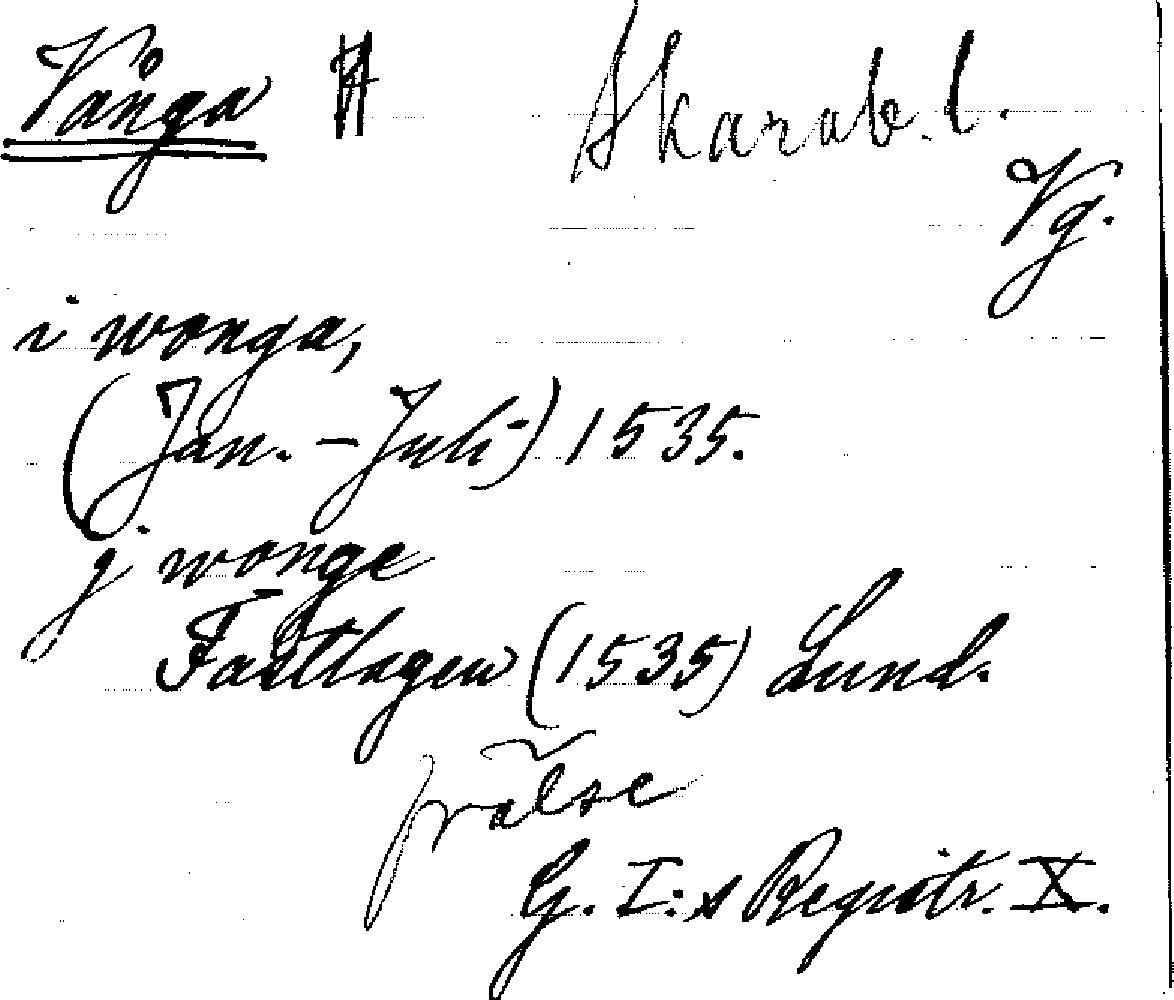 Vånga Skarab. l.
Vg.
i wonga,
(Jan. - Juli) 1535.
j wonge
Fastlagen (1535) Lund.
frälse
G. I:s Registr. X.